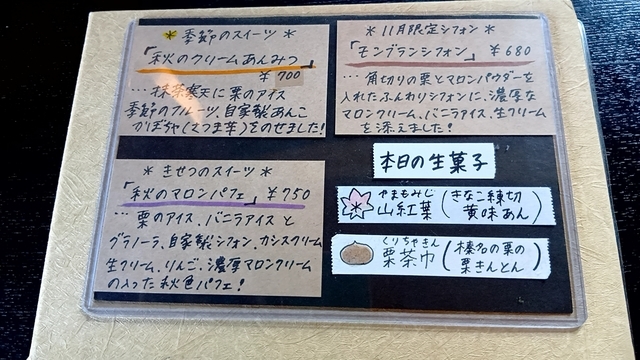 * 季節のスイーツ *
「秋のクリームあんみつ」
¥700
… 抹茶寒天に栗のアイス
季節のフルーツ、自家製あんこ
かぼちゃ(さつま芋)をのせました!
* きせつのスイーツ *
「秋のマロンパフェ」 ¥750
… 栗のアイス、バニラアイスと
グラノーラ、自家製シフォン、カシスクリーム
生クリーム、りんご、濃厚マロンクリーム
の入った秋色パフェ!
* 11月限定シフォン *
「モンブランシフォン」 ¥680
… 角切りの栗とマロンパウダーを
入れたふんわりシフォンに、濃厚な
マロンクリーム、バニラアイス、生クリーム
を添えました!
本日の生菓子
やまもみじ
山紅葉(きなこ練切
黄味あん)
くりちゃきん
栗茶巾(榛名の栗の
栗きんとん)